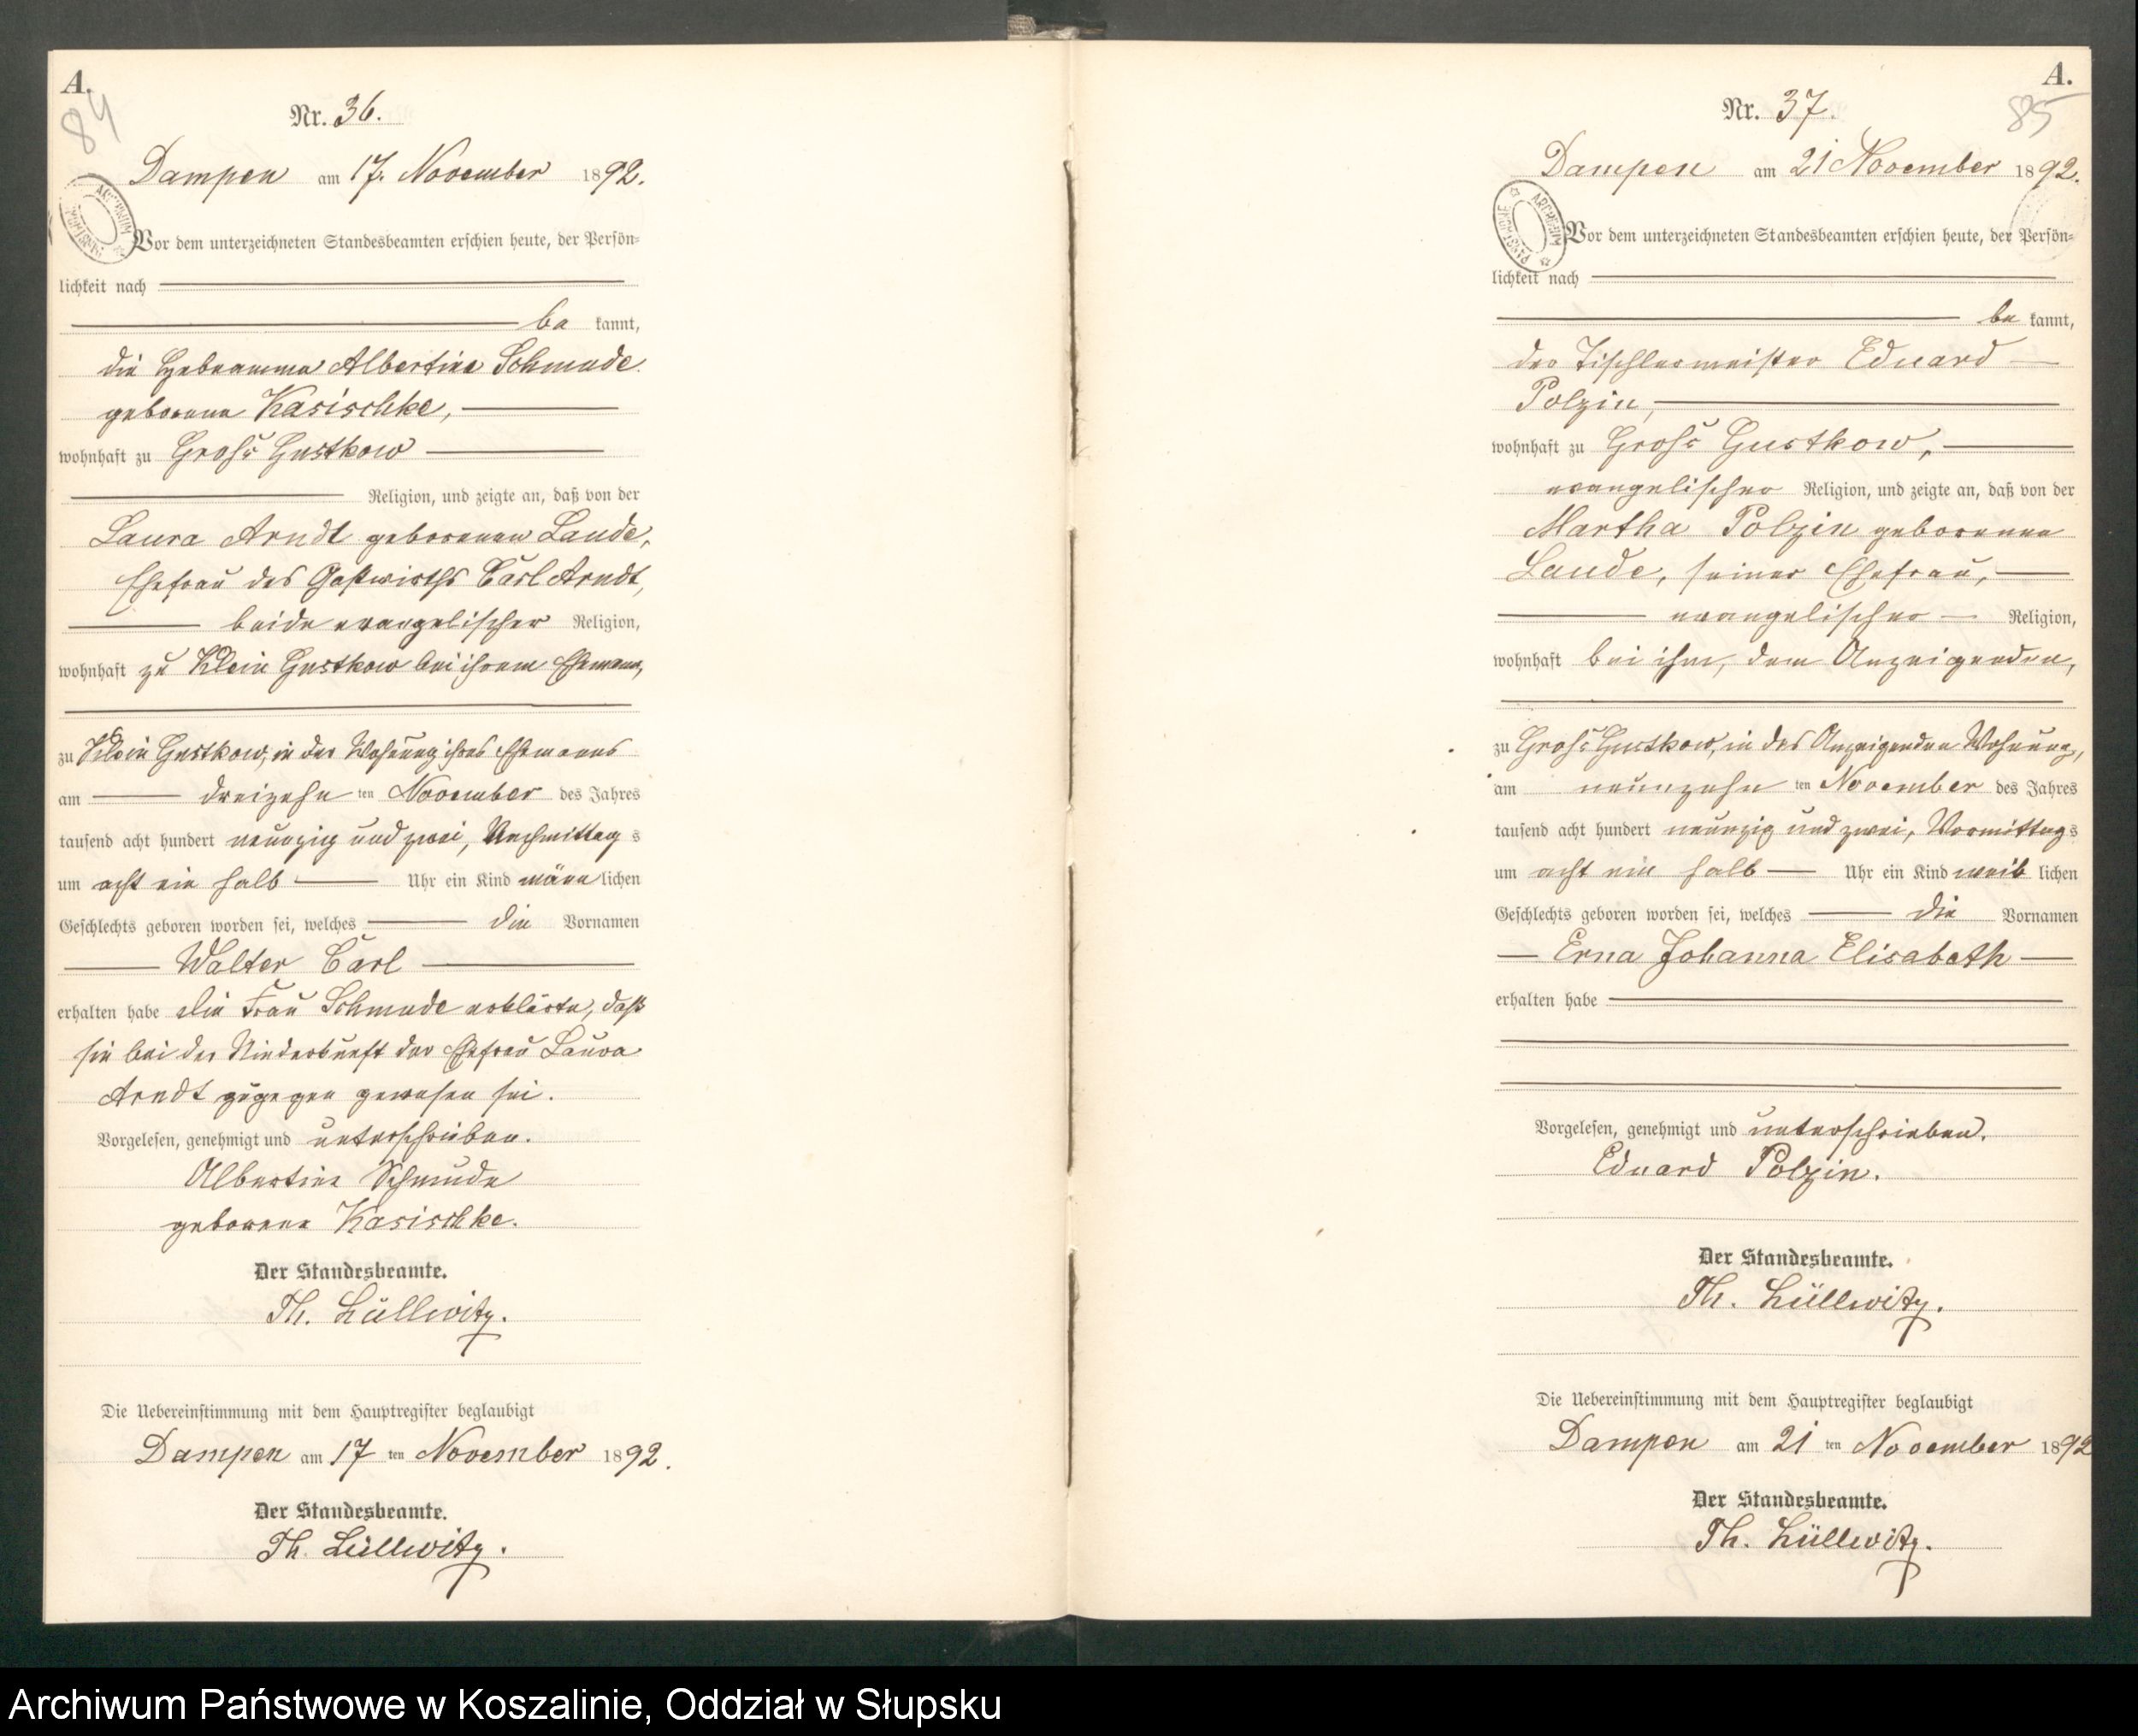 A.
84
Nr. 36.
Dampen am 17. November 1892.
Vor dem unterzeichneten Standesbeamten erschien heute, der Persön-
lichkeit nach
be kannt,
die Hebeamme Albertine Schmude
geborene Kasischke,
wohnhaft zu Groß Gustkow
Religion, und zeigte an, daß von der
Laura Arndt geborenen Laude,
Ehefrau des Gastwirths Carl Arndt,
beide evangelischer Religion,
wohnhaft zu Klein Gustkow bei ihrem Ehemann,
zu Klein Gustkow, in der Wohnung ihres Ehemanns
am dreizehn ten November des Jahres
tausend acht hundert neunzig und zwei, Nachmittag s
um acht ein halb Uhr ein Kind männ lichen
Geschlechts geboren worden sei, welches die Vornamen
Walter Carl
erhalten habe Die Frau Schmude erklärte, daß
sie bei der Niederkunft der Ehefrau Laura
Arndt zugegen gewesen sei.
Vorgelesen, genehmigt und unterschrieben.
Albertine Schmude
geborene Kasischke.
Der Standesbeamte.
Th. Lüllwitz.
Die Uebereinstimmung mit dem Hauptregister beglaubigt
Dampen am 17 ten November 1892.
Der Standesbeamte.
Th. Lüllwitz.
A.
85
Nr. 37.
Dampen am 21 November 1892.
ARCHIWUM PAŃSTWOWE
Vor dem unterzeichneten Standesbeamten erschien heute, der Persön-
lichkeit nach
be kannt,
der Tischlermeister Eduard
Polzin,
wohnhaft zu Groß Gustkow,
evangelischer Religion, und zeigte an, daß von der
Martha Polzin geborenen
Laude, seiner Ehefrau,
evangelischer Religion,
wohnhaft bei ihm, dem Anzeigenden,
zu Groß Gustkow, in des Anzeigenden Wohnung,
am neunzehn ten November des Jahres
tausend acht hundert neunzig und zwei, Vormittag s
um acht ein halb Uhr ein Kind weib lichen
Geschlechts geboren worden sei, welches die Vornamen
Erna Johanna Elisabeth
erhalten habe
Vorgelesen, genehmigt und unterschrieben.
Eduard Polzin.
Der Standesbeamte.
Th. Lüllwitz.
Die Uebereinstimmung mit dem Hauptregister beglaubigt
Dampen am 21 ten November 1892
Der Standesbeamte.
Th. Lüllwitz.
Archiwum Państwowe w Koszalinie, Oddział w Słupsku